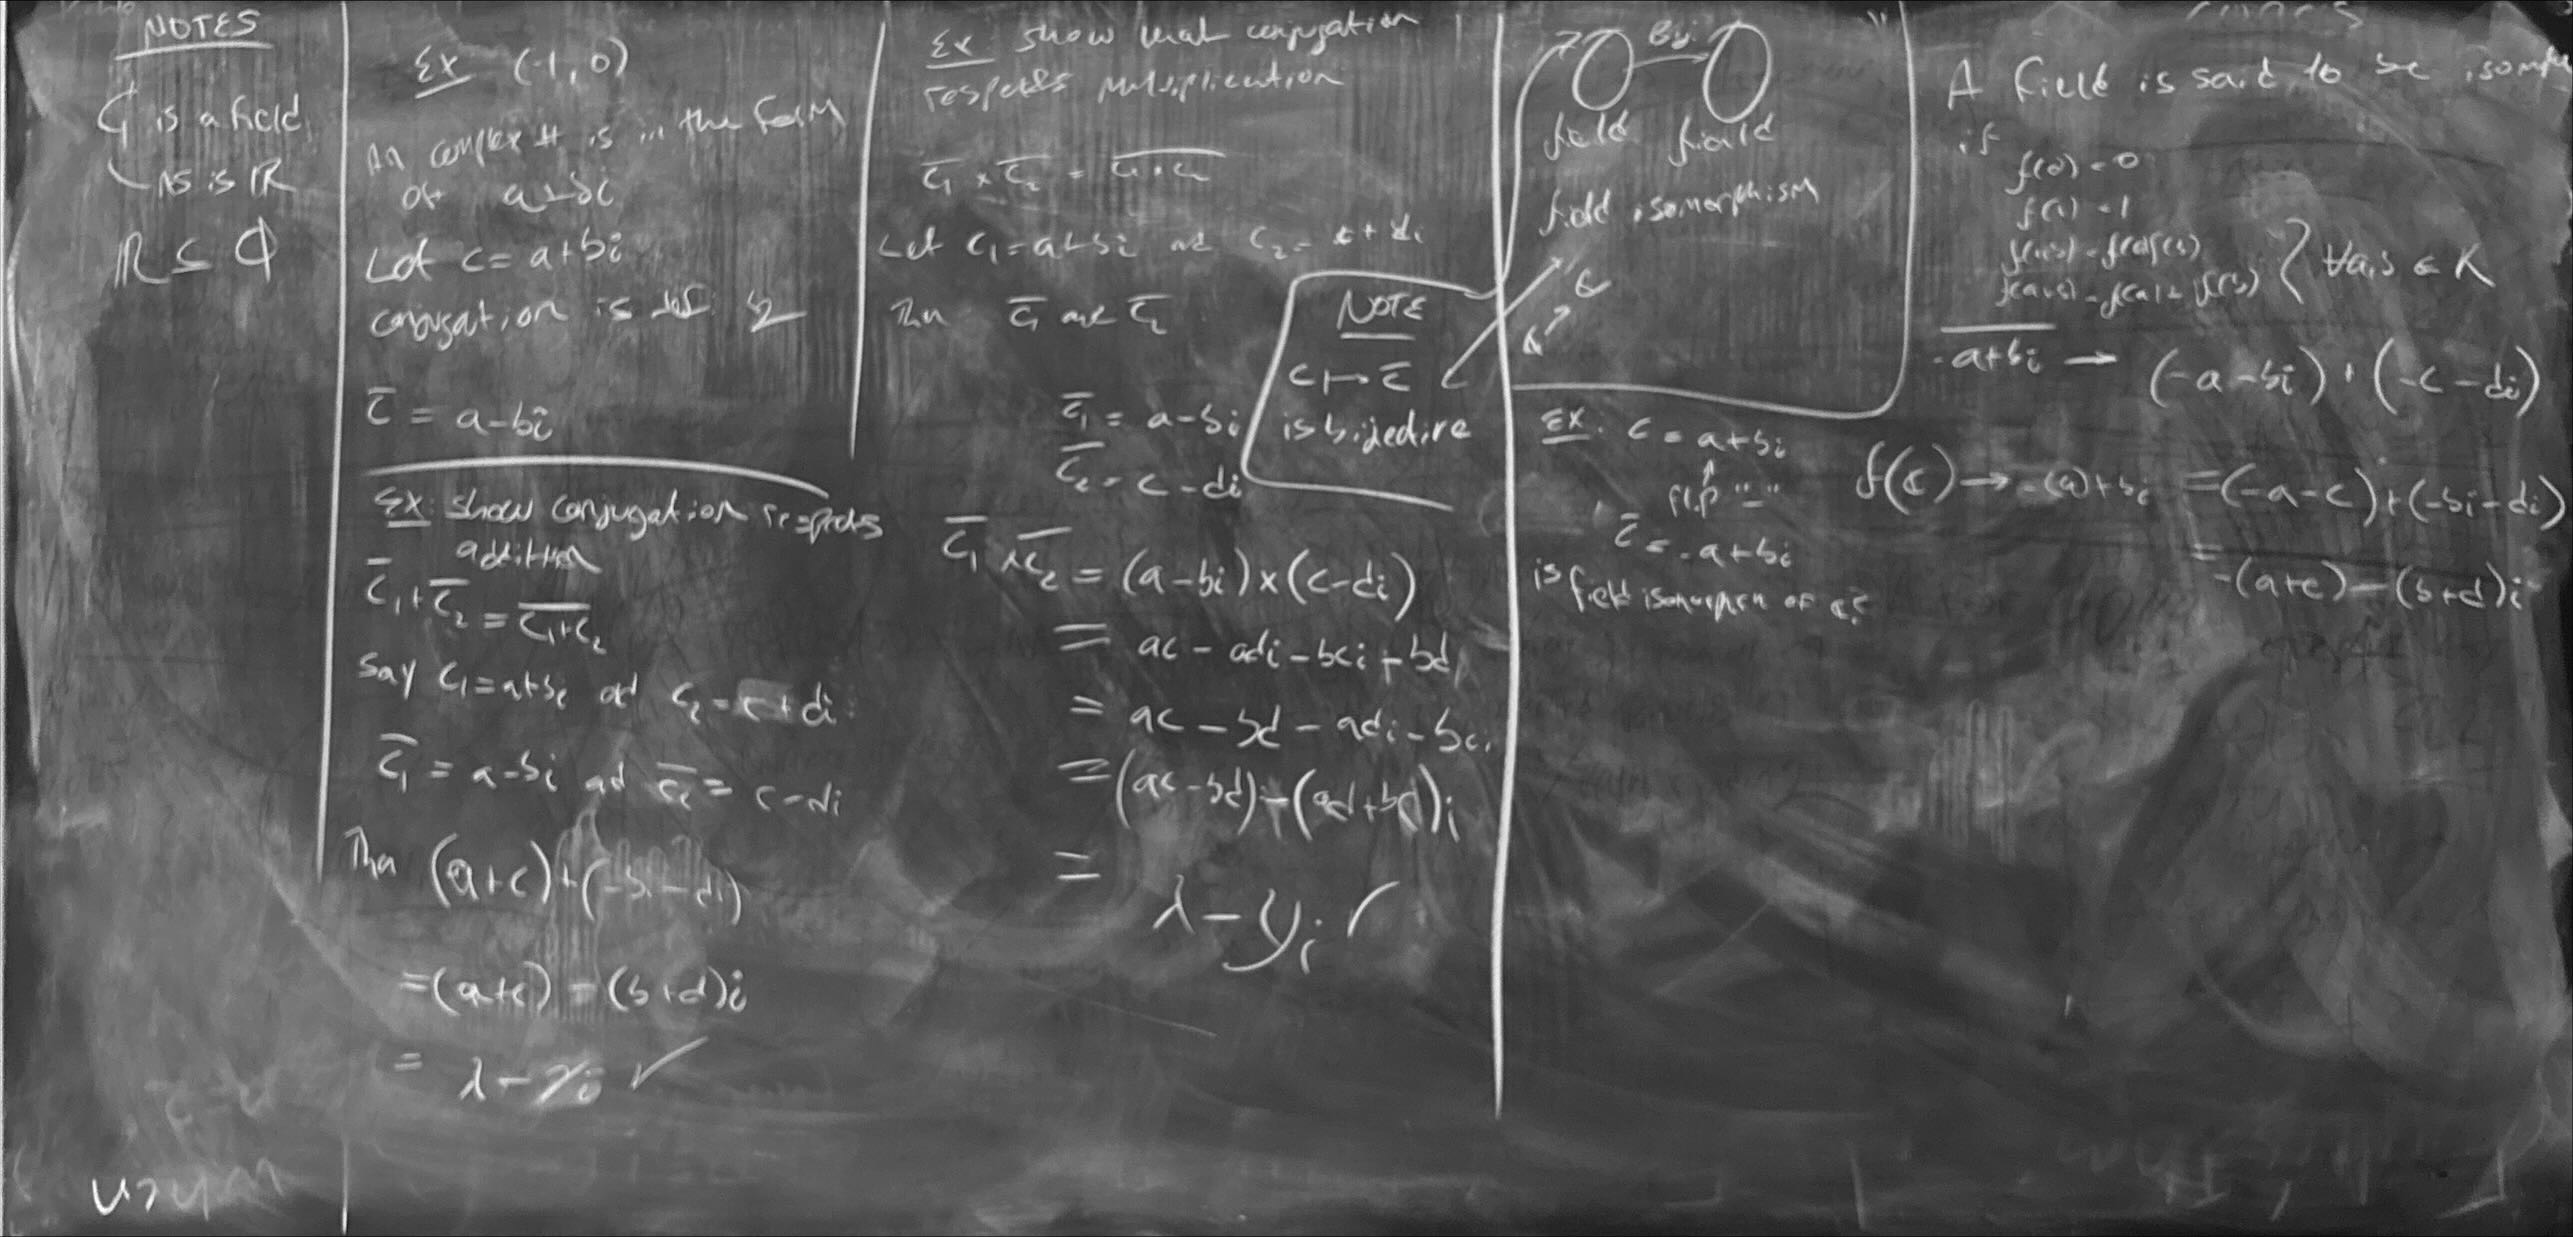 NOTES
₵ is a field
as is ℝ
ℝ ⊆ ₵
Ex (-1, 0)
An complex # is in the form
of a+bi
Let c = a+bi
conjugation is def. by
c̄ = a-bi
Ex: show conjugation respects
addition
c̄₁ + c̄₂ = \overline{c₁+c₂}
Say c₁ = a+bi ad c₂ = c+di
c̄₁ = a-bi ad c̄₂ = c-di
Then (a+c)+(-bi-di)
=(a+c)-(b+d)i
= λ-γi ✓
Ex: show that conjugation
respects multiplication
c̄₁ × c̄₂ = \overline{c₁·c₂}
Let c₁=a+bi and c₂= c+di
Then c̄₁ and c̄₂
c̄₁ = a-bi
c̄₂ = c-di
c̄₁ × c̄₂ = (a-bi)×(c-di)
= ac-adi-bci+bd
= ac-bd-adi-bci
= (ac-bd)-(ad+bc)i
= λ-yi ✓
NOTE
c ↦ c̄
is bijective
Bij.
field field
field isomorphism
Ex: c = a+bi
flip "-"
c̄ = -a+bi
is field isomorphism of ₵?
A field is said to be isomor
if
f(0)=0
f(1)=1
f(a·b)=f(a)f(b)
f(a+b)=f(a)+f(b) } ∀a,b ∈ K
-a+bi → (-a-bi)+(-c-di)
f(c) → -(a)+bi =(-a-c)+(-bi-di)
= -(a+c)-(b+d)i